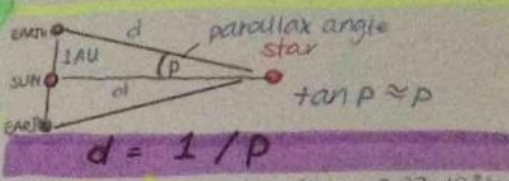 EARTH d parallax angle
star
1AU
SUN p
d tan p ≈ p
EARTH
d = 1 / P